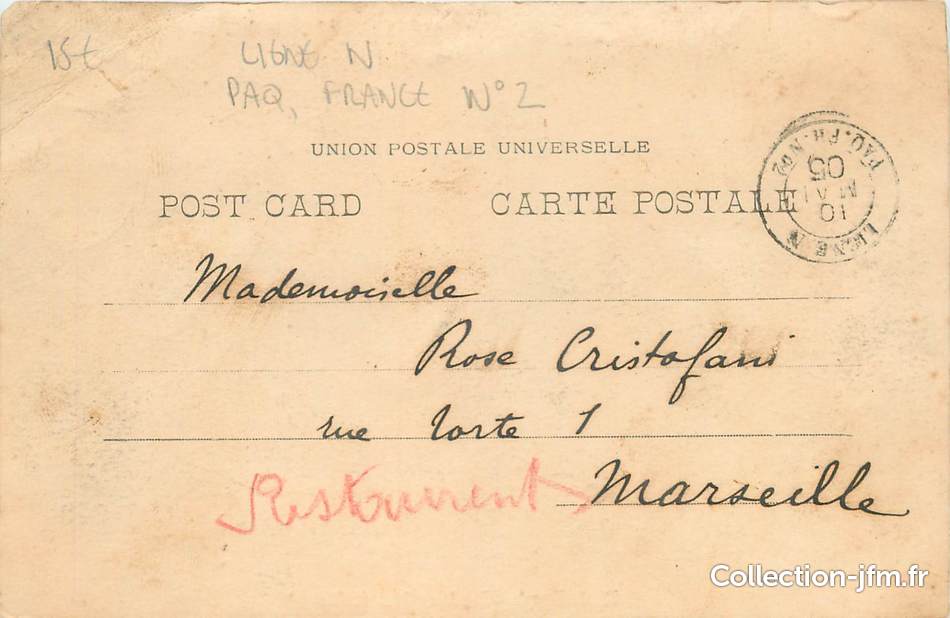 15€
LIGNE N
PAQ, FRANCE N°2
UNION POSTALE UNIVERSELLE
POST CARD CARTE POSTALE
LIGNE N
10
MAI
05
PAQ. FR. Nº2
Mademoiselle
Rose Cristofani
rue Torte 1
Restaurent
Marseille
Collection-jfm.fr